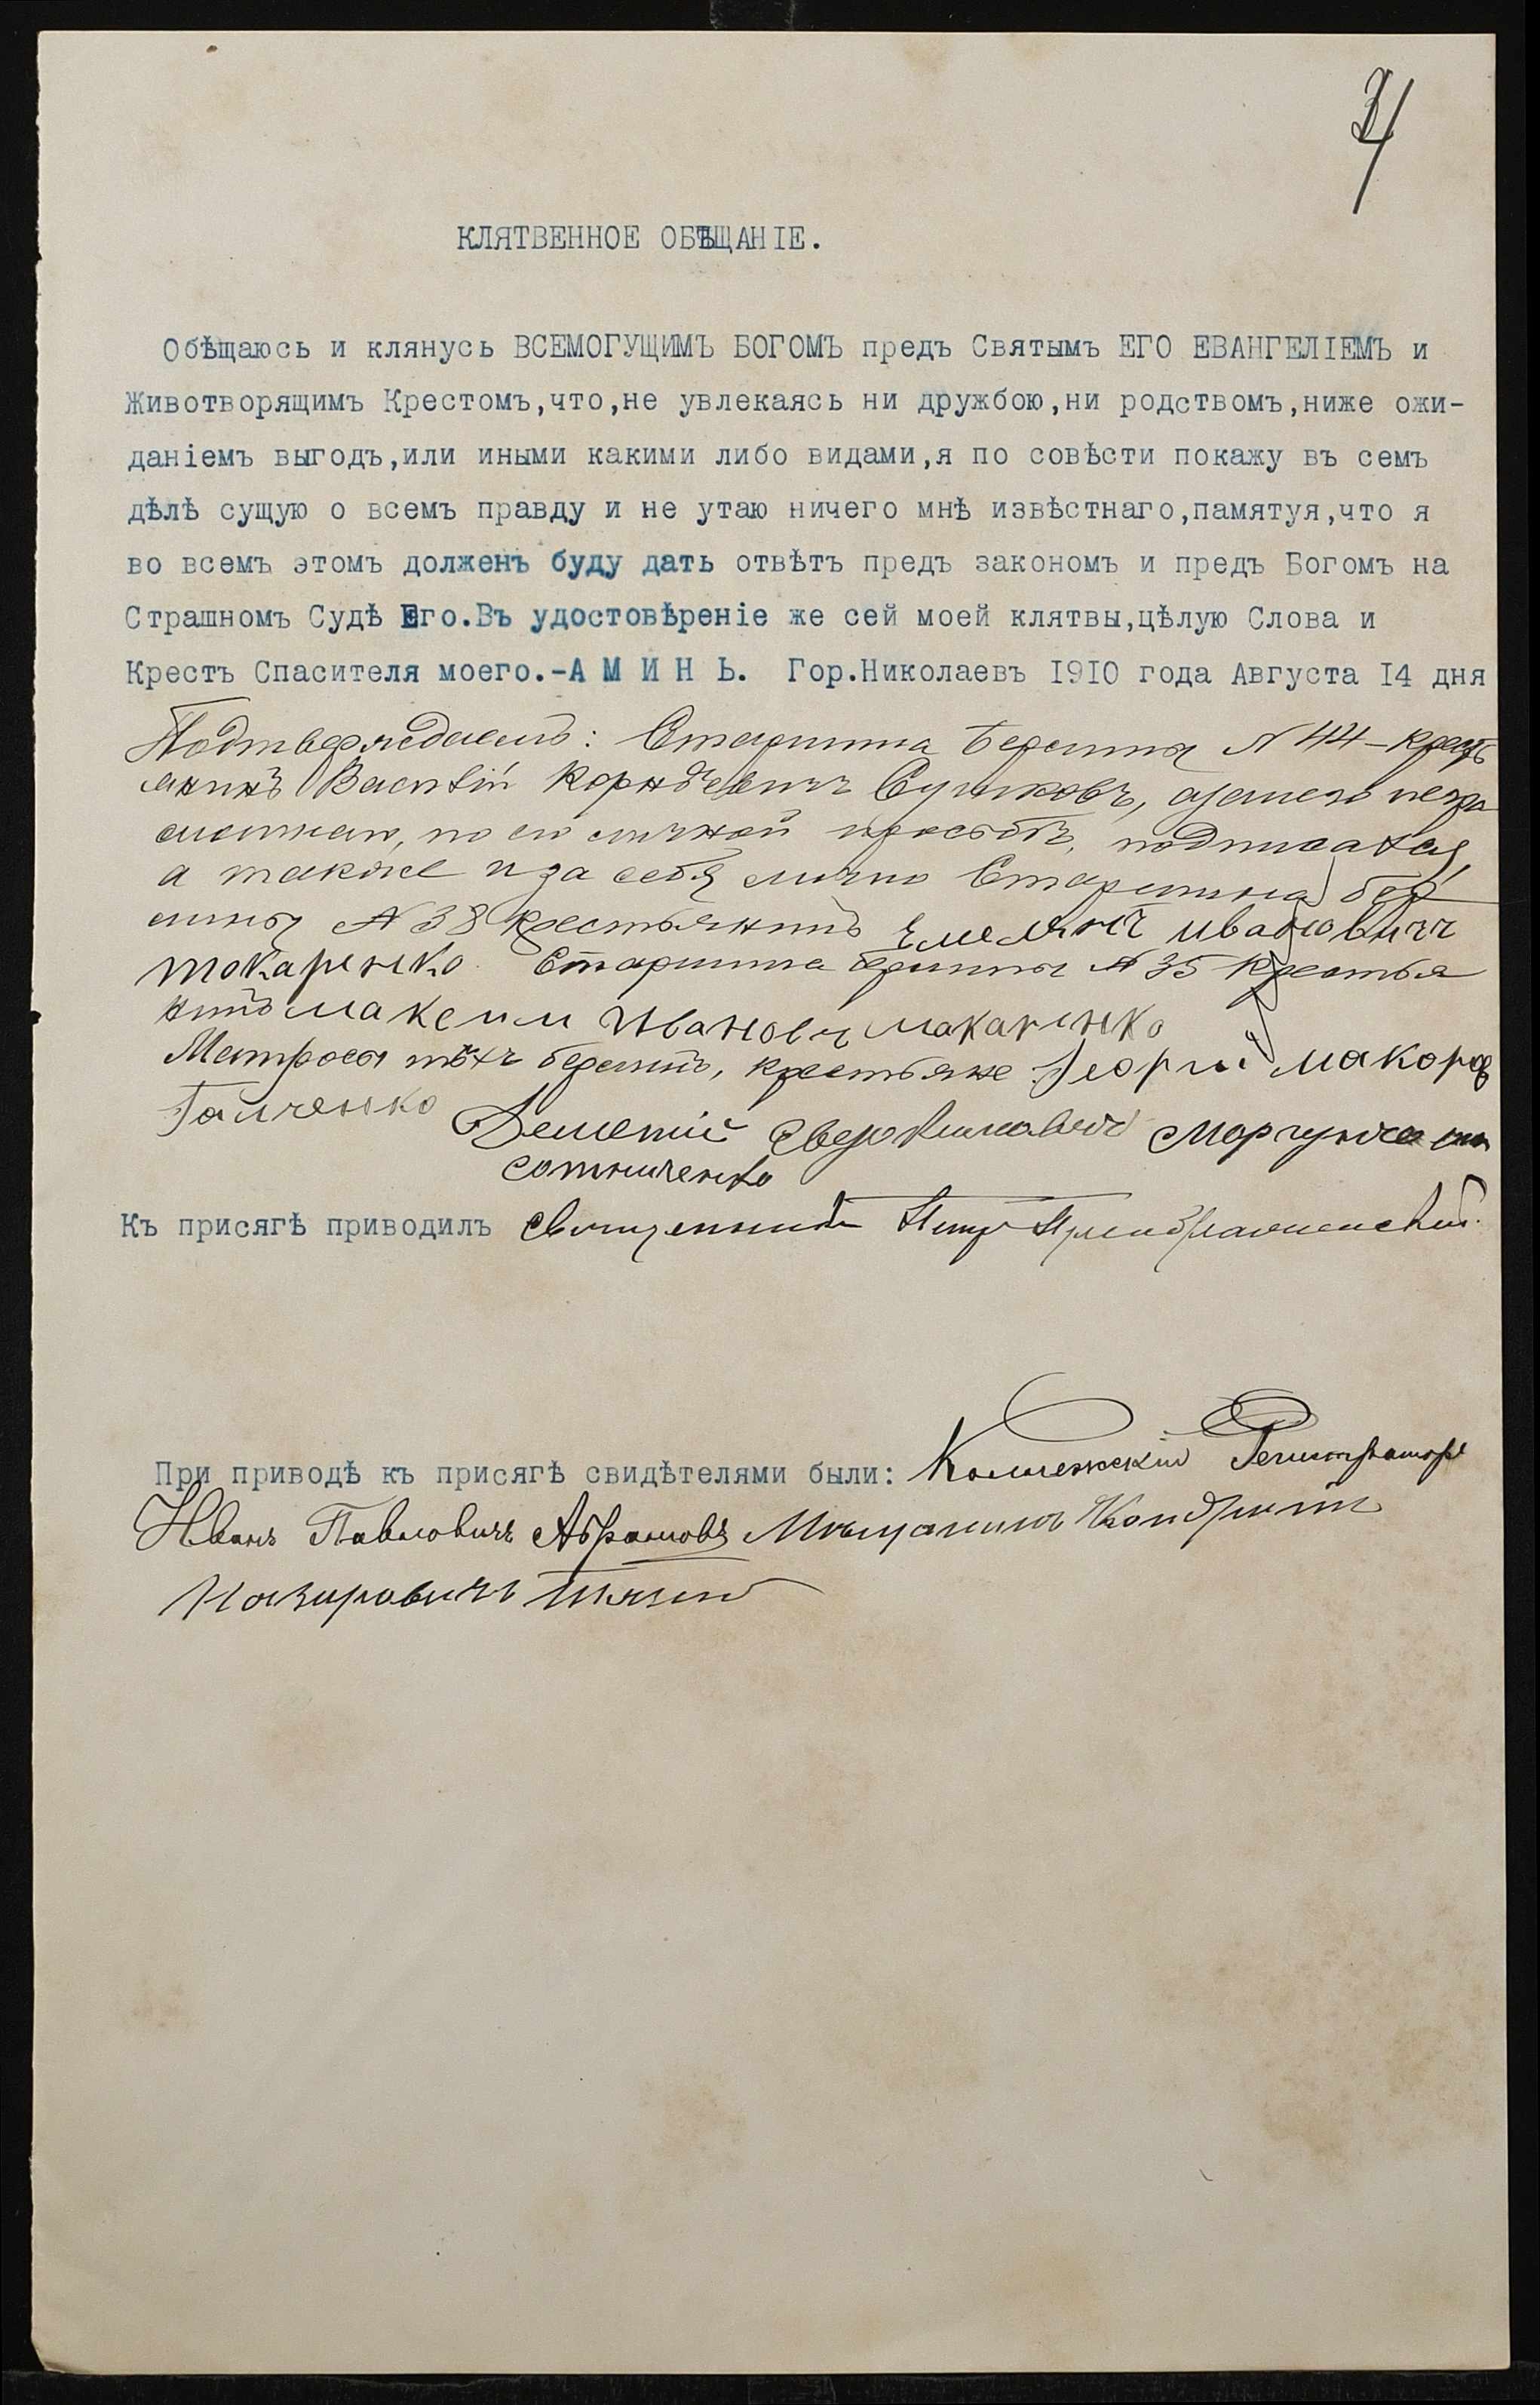 4
КЛЯТВЕННОЕ ОБѢЩАНІЕ.
Обѣщаюсь и клянусь ВСЕМОГУЩИМЪ БОГОМЪ предъ Святымъ ЕГО ЕВАНГЕЛІЕМЪ и
Животворящимъ Крестомъ,что,не увлекаясь ни дружбою,ни родствомъ,ниже ожи-
даніемъ выгодъ,или иными какими либо видами,я по совѣсти покажу въ семъ
дѣлѣ сущую о всемъ правду и не утаю ничего мнѣ извѣстнаго,памятуя,что я
во всемъ этомъ долженъ буду дать отвѣтъ предъ закономъ и предъ Богомъ на
Страшномъ Судѣ Его.Въ удостовѣреніе же сей моей клятвы,цѣлую Слова и
Крестъ Спасителя моего.-А М И Н Ь. Гор.Николаевъ 1910 года Августа 14 дня
Подтверждаемъ: Старшина берлины № 44 - кресть
янинъ Василій Корнѣевичъ
по его личной просьбѣ, подписался,
а также и за себя лично Старшина бер
лины № 38 крестьянинъ Емельянъ Ивановичъ
Токаренко. Старшина берлины № 35 крестья
нинъ Максим Иванович Макаренко
Матросы тѣхъ берлинъ, крестьяне Георгий Макоров
Галченко
Дементій
Сотниченко
Къ присягѣ приводилъ священникъ Петръ Преображенскій.
При приводѣ къ присягѣ свидѣтелями были: Коллежскій Регистраторъ
Иванъ Павловичъ Абрамовъ Мѣщанинъ Кондратъ